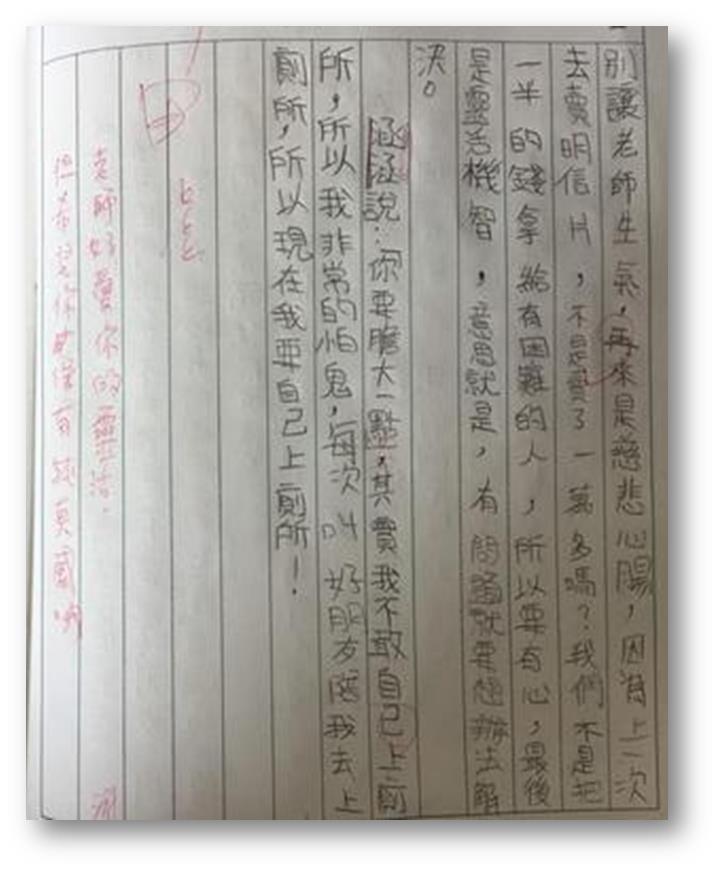 別讓老師生氣，再來是慈悲心腸，因為上一次
去賣明信片，不是賣了一萬多嗎？我們不是把
一半的錢拿給有困難的人，所以要有心，最後
是靈活機智，意思就是，有問題就要想辦法解
決。
涵涵說：你要膽大一點，其實我不敢自己上廁
所，所以我非常的怕鬼，每次叫好朋友陪我去上
廁所，所以現在我要自己上廁所！
老師好愛你的靈活，
但希望你